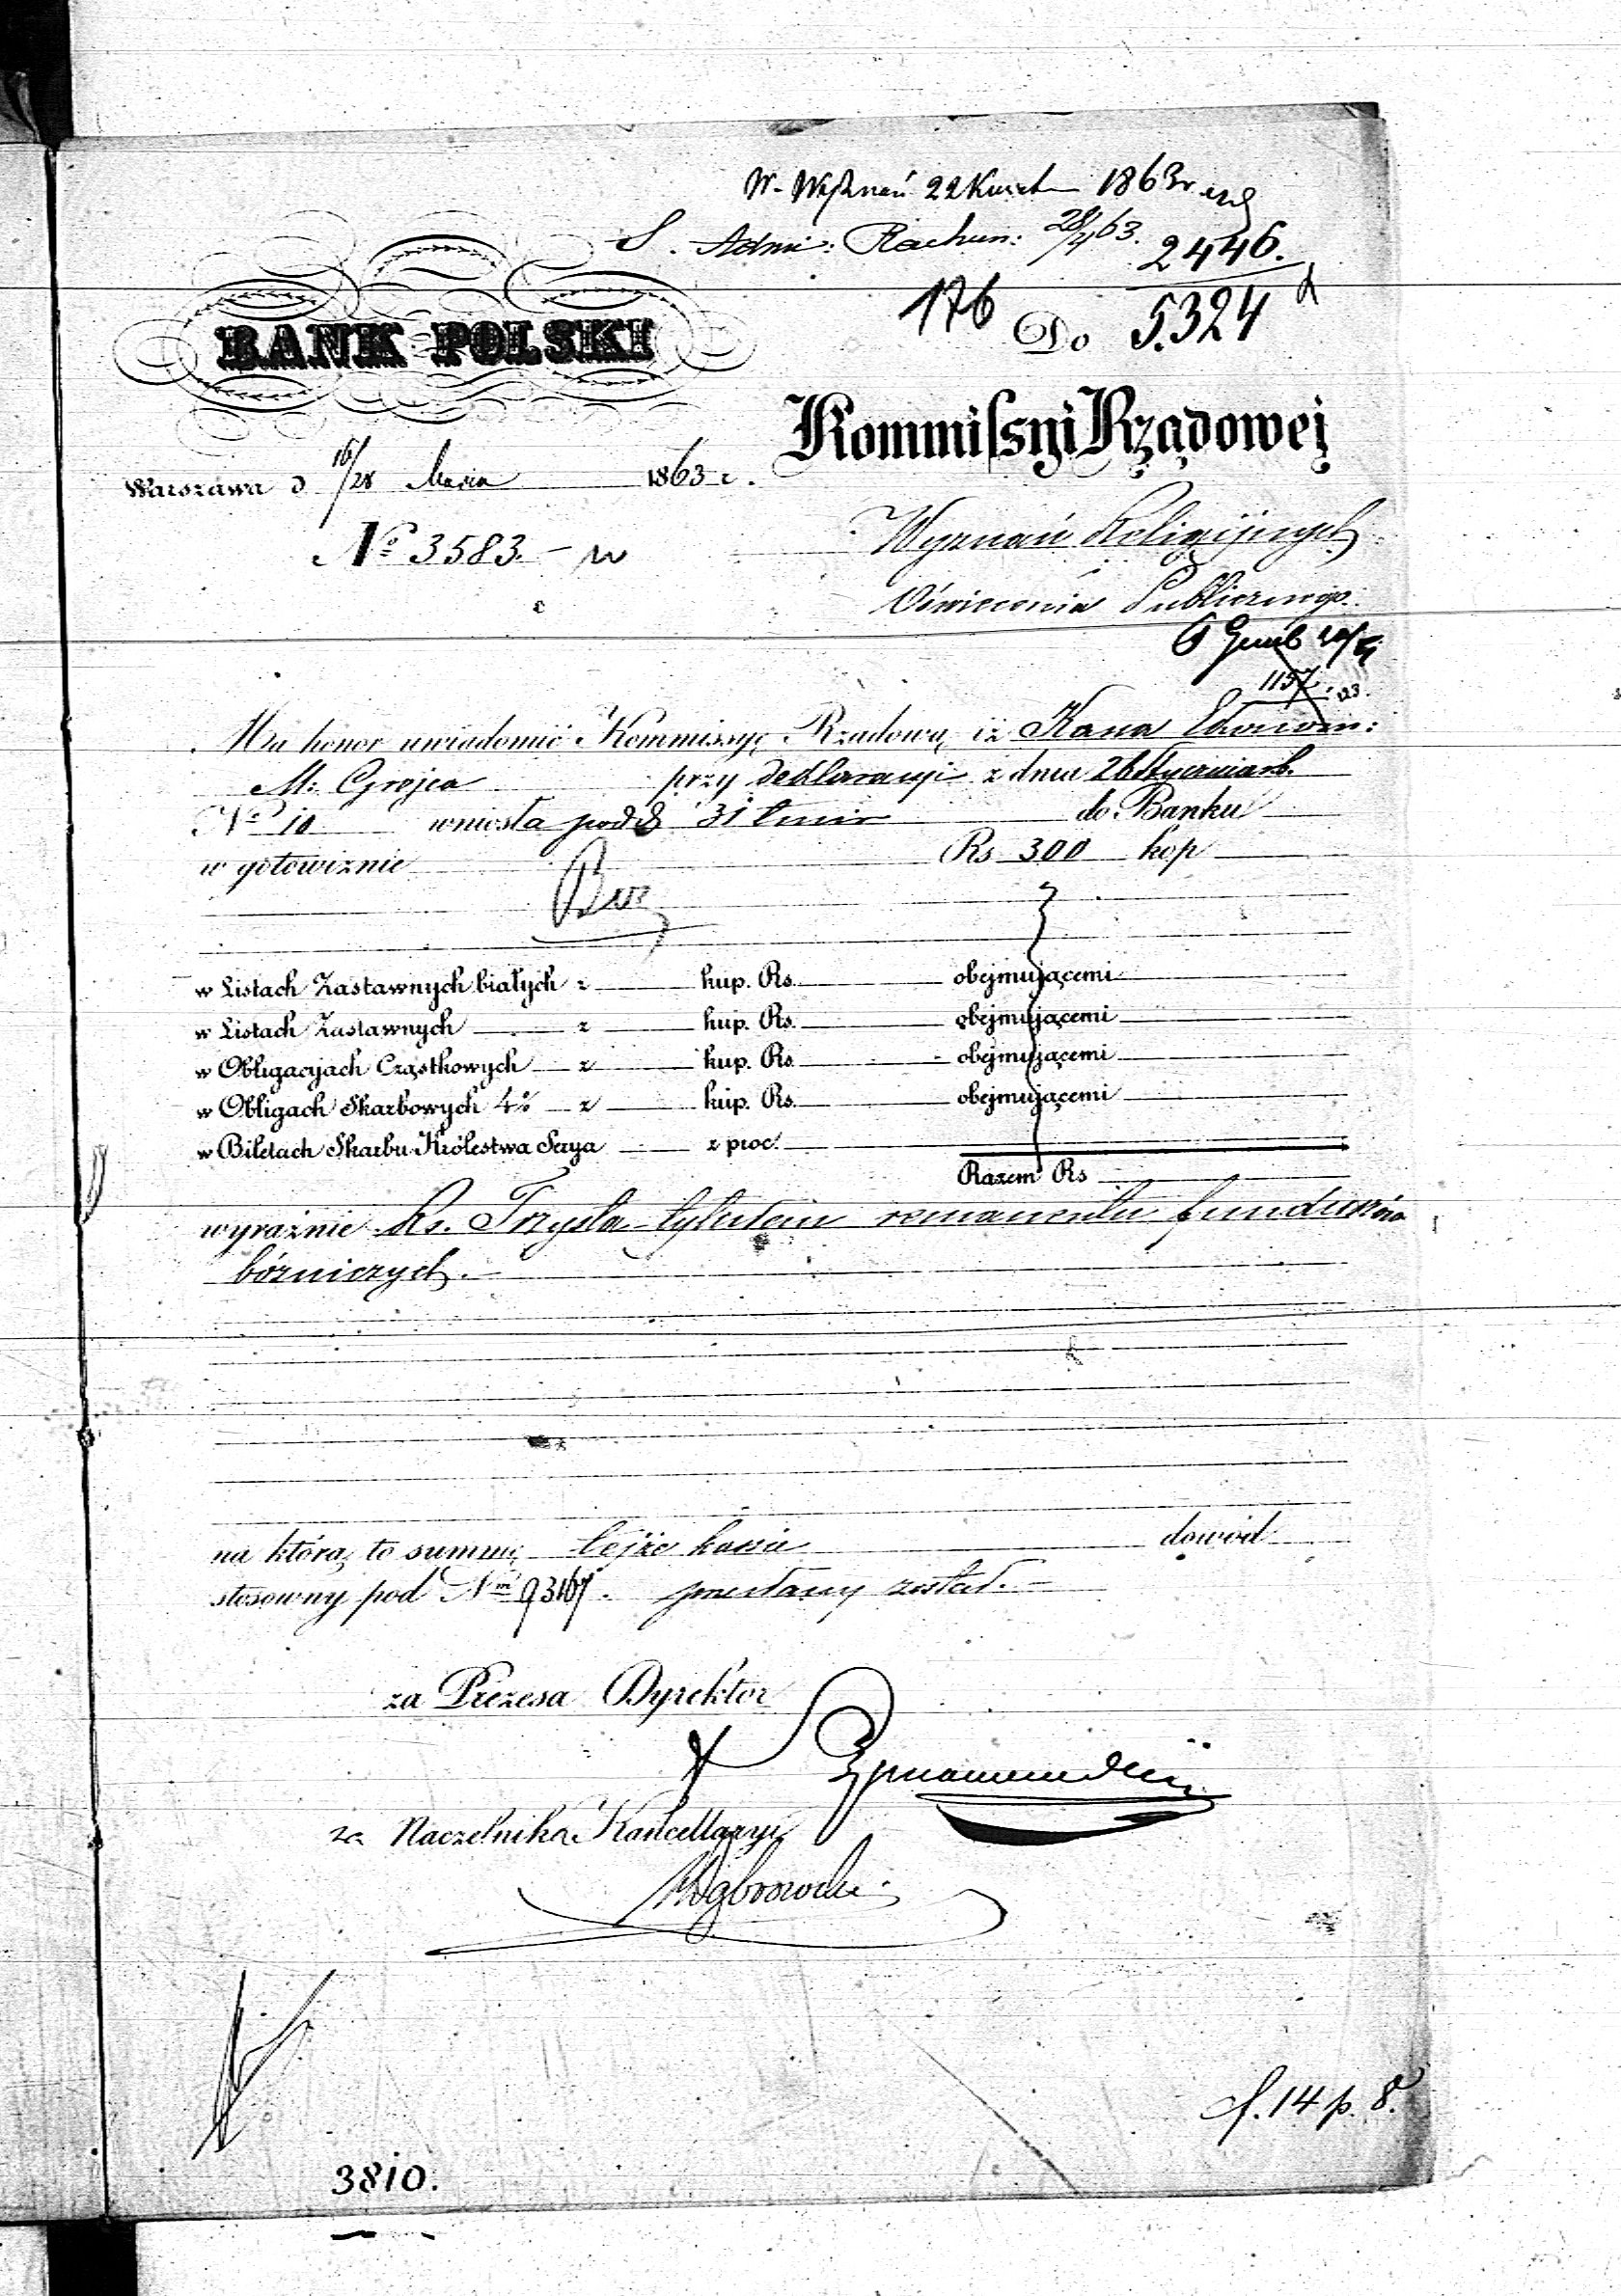 W. Wyznań 22 Kwiet 1863 r
S. Adm: Rachun: 28/4 63.
2446.
176 Do 5324
BANK POLSKI
Kommissyi Rządowej
Warszawa d 16/28 Marca 1863 r.
No 3583. - w
Wyznań Religijnych
Oświecenia Publicznego.
1157
Ma honor uwiadomić Kommissyę Rządową iż Kassa Ekonom:
M: Grojca przy deklaracyi z dnia 26 Stycznia r.b.
No 10 wniosła pod d 31 t. m. i r. do Banku
w gotowiznie Rs 300 kop
w Listach Zastawnych białych z kup. Rs. obejmującemi
w Listach Zastawnych z kup. Rs. obejmującemi
w Obligacyjach Cząstkowych z kup. Rs. obejmującemi
w Obligach Skarbowych 4% z kup. Rs. obejmującemi
w Biletach Skarbu Królestwa Serya z proc.
Razem Rs
wyraźnie Rs. Trzysta tytułem remanentu funduszów
bóżniczych. -
na którą to summę tejże kassie dowód
stosowny pod Nm 93167. przesłany został. -
za Prezesa Dyrektor
za Naczelnika Kancellaryi
MDąbrowski
f. 14 p. 8.
3810.